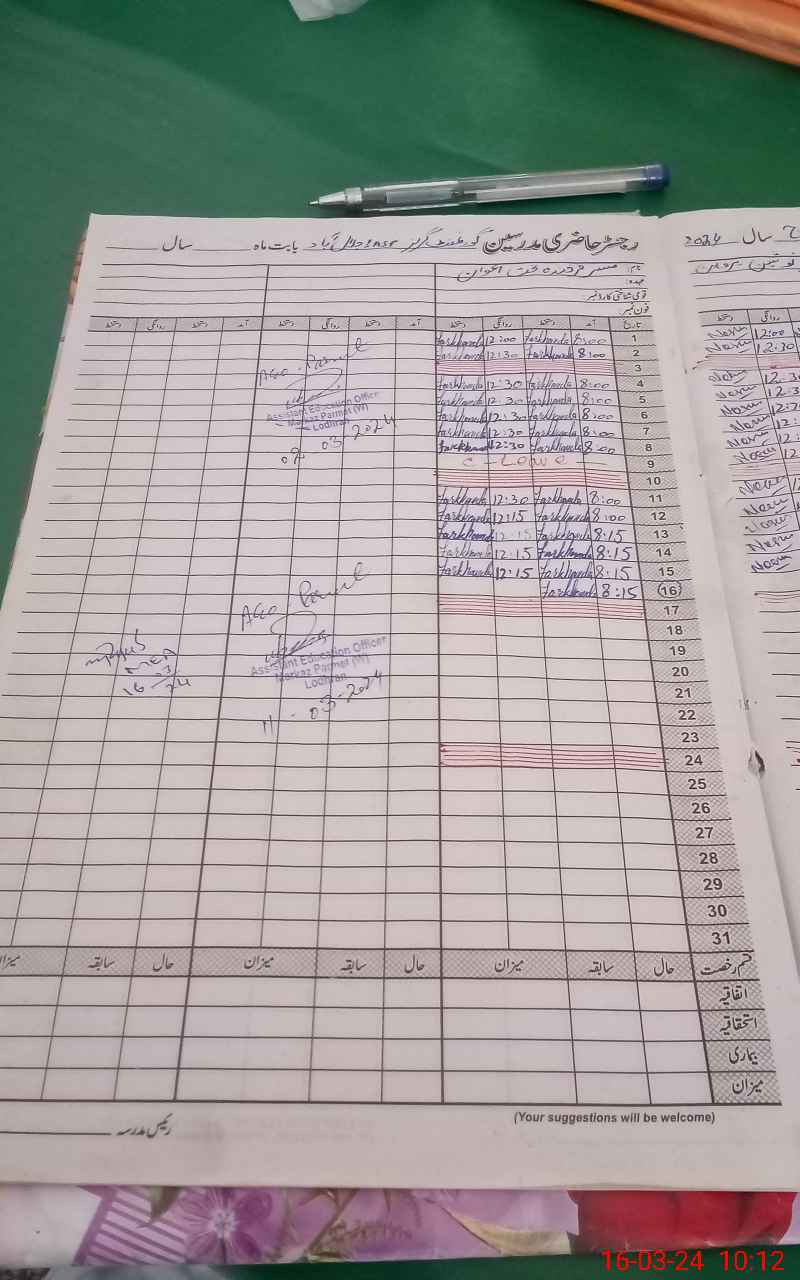 رجسٹر حاضری مدرسین گورنمنٹ گرلز بابت ماہ سال
سال 2024
نام:
عہدہ:
قومی شناختی کارڈ نمبر:
فون نمبر:
تاریخ آمد دستخط روانگی دستخط آمد دستخط روانگی دستخط آمد دستخط روانگی دستخط
روانگی دستخط
1 8:00 Farkhanda 12:00 Farkhanda
2 8:00 Farkhanda 12:30 Farkhanda
3
4 8:00 Farkhanda 12:30 Farkhanda
5 8:00 Farkhanda 12:30 Farkhanda
6 8:00 Farkhanda 12:30 Farkhanda
7 8:00 Farkhanda 12:30 Farkhanda
8 8:00 Farkhanda 12:30 Farkhanda
9 C - Leave
10
11 8:00 Farkhanda 12:30 Farkhanda
12 8:00 Farkhanda 12:15 Farkhanda
13 8:15 Farkhanda 12:15 Farkhanda
14 8:15 Farkhanda 12:15 Farkhanda
15 8:15 Farkhanda 12:15 Farkhanda
16 8:15 Farkhanda
17
18
19
20
21
22
23
24
25
26
27
28
29
30
31
Assistant Education Officer
Markaz Parmat (W)
Lodhran
07 03 2024
Assistant Education Officer
Markaz Parmat (W)
Lodhran
11 - 03 - 2024
MEA
16 03 24
12:00
12:30
قسم رخصت حال سابقہ میزان حال سابقہ میزان حال سابقہ میزان
اتفاقیہ
استحقاقیہ
بیماری
میزان
(Your suggestions will be welcome)
رئیس مدرسہ
16-03-24 10:12